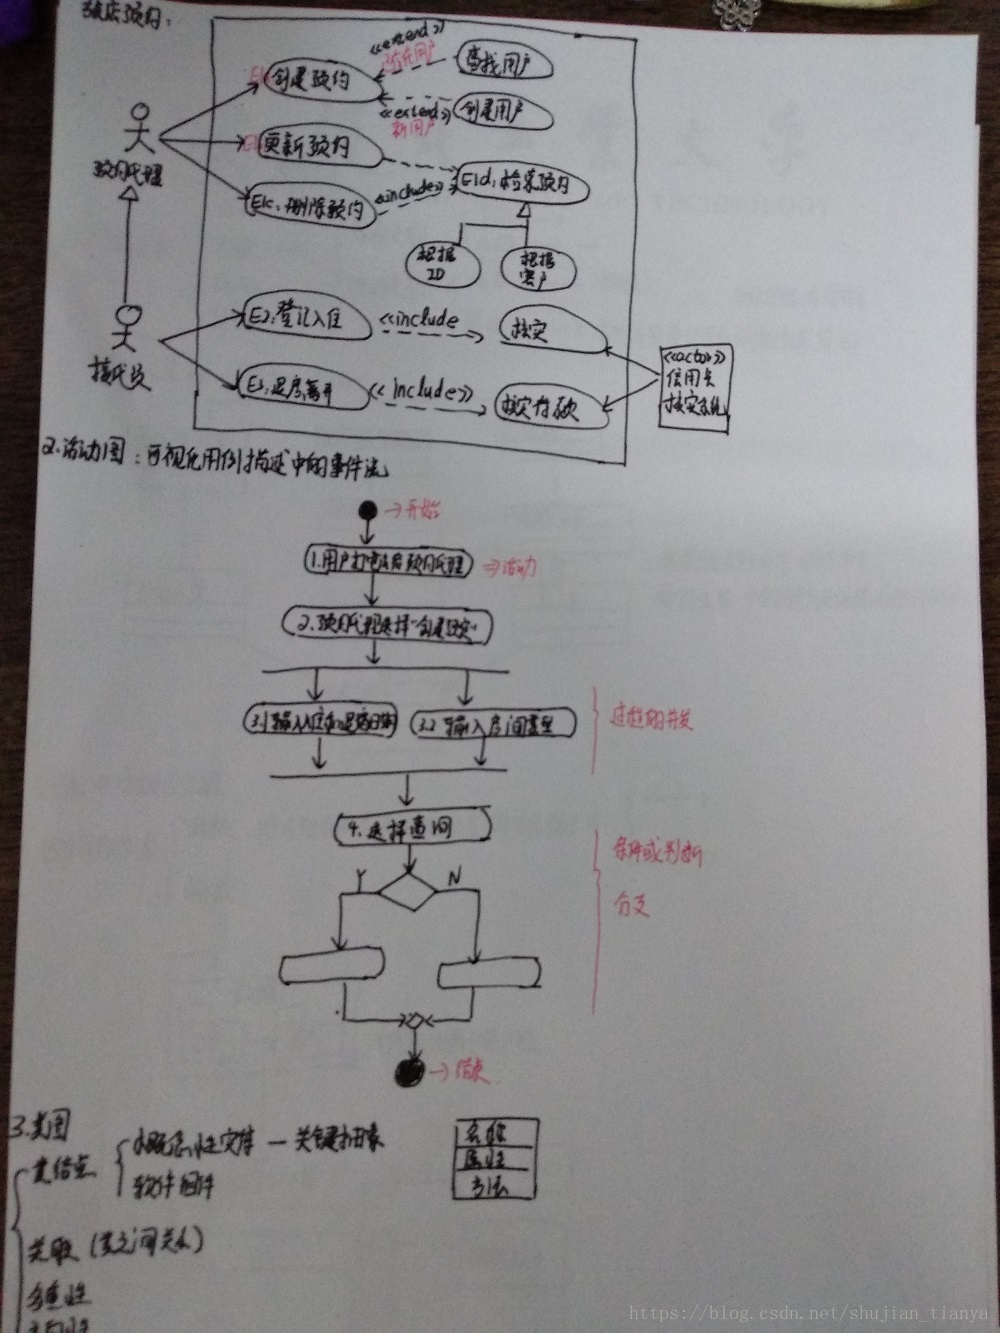 酒店预约：
<<extend>>
查找用户
E1a 创建预约
<<extend>>
新用户
创建用户
更新预约
E1d: 检索预约
预约代理
E1c: 删除预约
<<include>>
根据
ID
根据
客户
E2: 登记入住
<<include
核实
<<actor>>
信用卡
核实系统
接待员
E3: 退房离开
<<include>>
核实存款
2. 活动图：可视化用例描述中的事件流
→开始
1. 用户打电话给预约代理
⇒活动
2. 预约代理选择"创建预约"
3.1 输入入住和退房日期
3.2 输入房间类型
过程的并发
4. 选择查询
条件或判断
Y
N
分支
→结束
3. 类图
类结点
概念性实体 — 关键抽象
软件组件
名称
属性
方法
关联（类之间关系）
多重性
https://blog.csdn.net/shujian_tianya